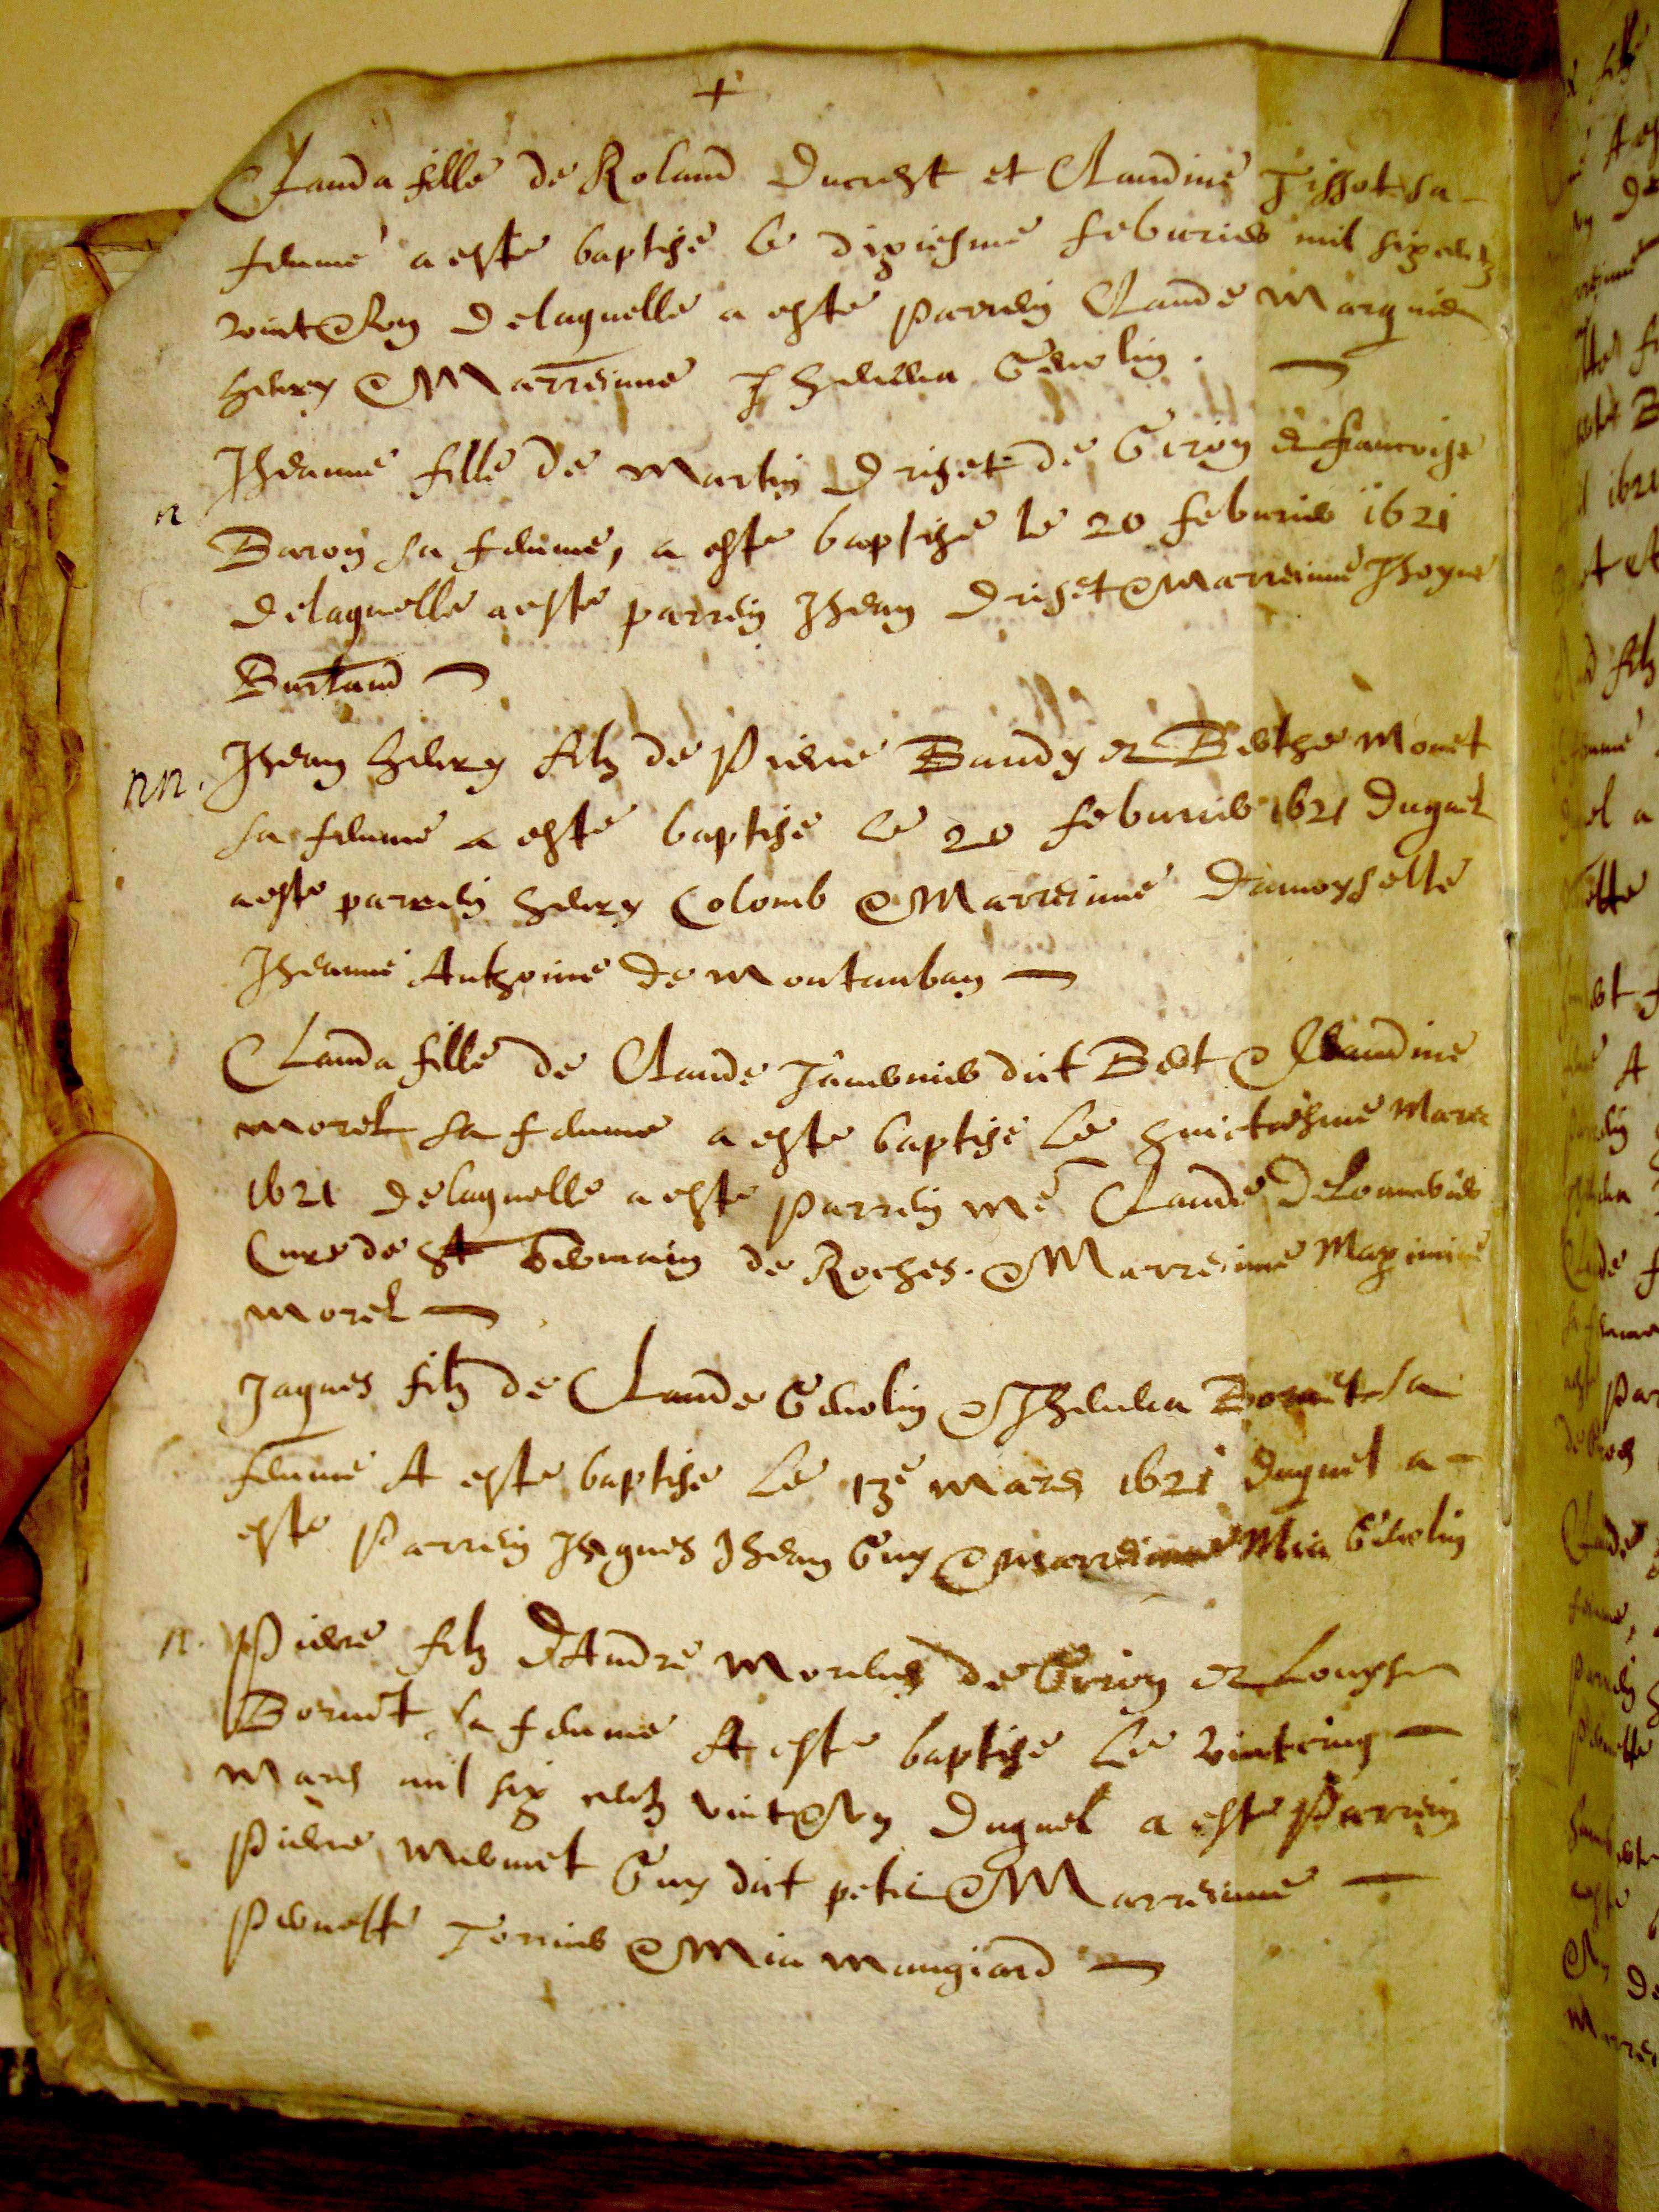 +
Clauda fille de Roland Ducrest et Claudine Tissot sa
femme a este baptise le dixiesme feburier mil six centz
vint & un delaquelle a este parrein Claude Marquis
henry & Marreinne Jhennen Genolin.
n Jheanne fille de Martin Driset de Giron et francoise
Baron sa femme, a este baptise le 20 feburier 1621
delaquelle a este parrein Jhean Driset & Marreinne Jhoyne
Burtand
nn. Jhean henry filz de Pierre Baudy et Berthe Monet
sa femme a este baptise le 20 feburier 1621 duquel
a este parrein henry Colomb & Marreinne Damoyselle
Jheanne Anthoine de Montauban
Clauda fille de Claude dit Bert & Claudine
Morel sa femme a este baptise le huictiesme Mars
1621 delaquelle a este parrein me Claude
Cure de st Germain de Roches. & Marreinne Maximine
Morel
Jaques filz de Claude Genolin & Bornet sa
femme A este baptise le 13e mars 1621 duquel a
este Parrein Jaques Jhean Guy & marreinne Mia Genolin
n. Pierre filz d'Andre de Giron et Louyse
Bornet sa femme A este baptise le vintcinq
Mars mil six centz vint & un Duquel a este Parrein
Pierre Mermet Guy dit petit & Marreinne
Pernette Tornier & Mia Maugiard